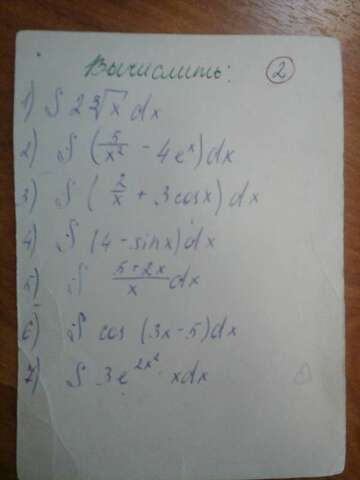 Вычислить: 2
1) ∫ 2∛x dx
2) ∫ (5/x² - 4eˣ) dx
3) ∫ (2/x + 3cosx) dx
4) ∫ (4 - sinx) dx
5) ∫ (5+2x)/x dx
6) ∫ cos (3x-5) dx
7) ∫ 3e^(2x²) · xdx